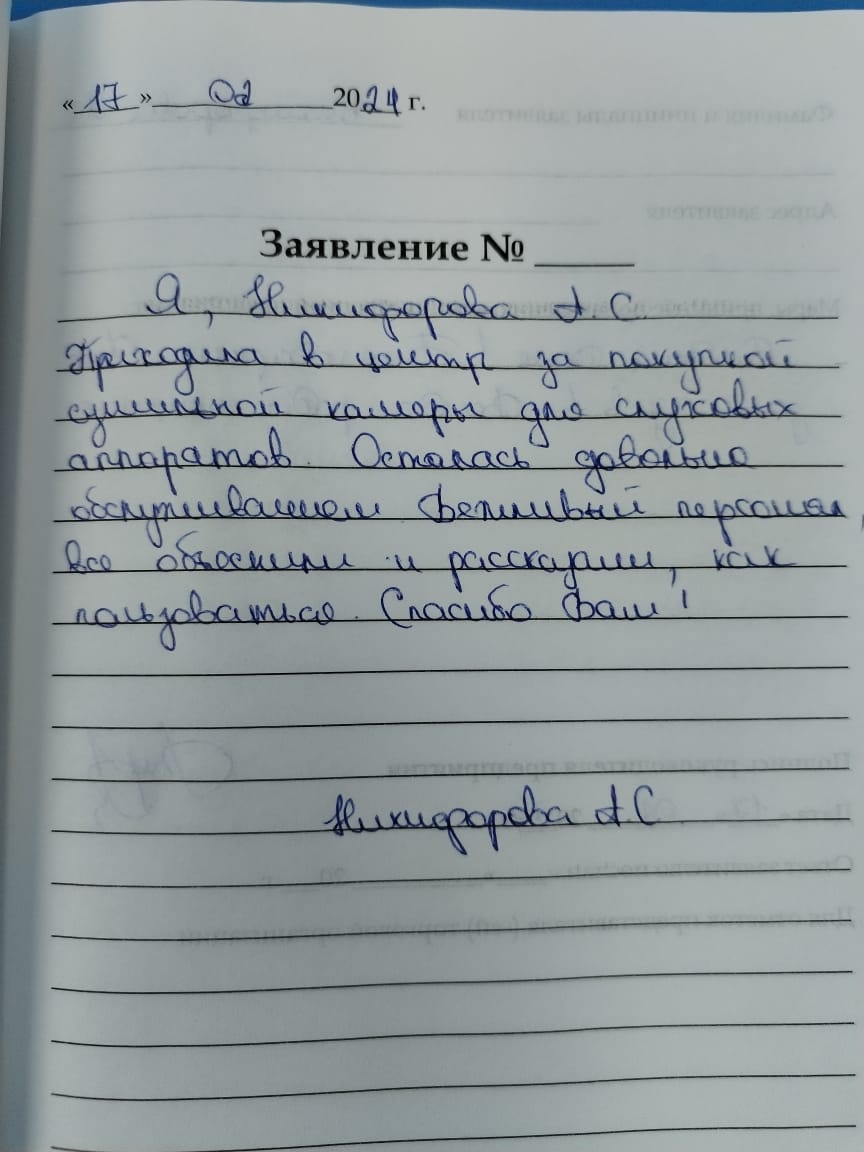 «17» 02 2024 г.
Заявление №
Я, Никифорова А. С.
Приходила в центр за покупкой
сушильной камеры для слуховых
аппаратов. Осталась довольна
обслуживанием. Вежливый персонал,
все объяснили и рассказали, как
пользоваться. Спасибо Вам!
Никифорова А. С